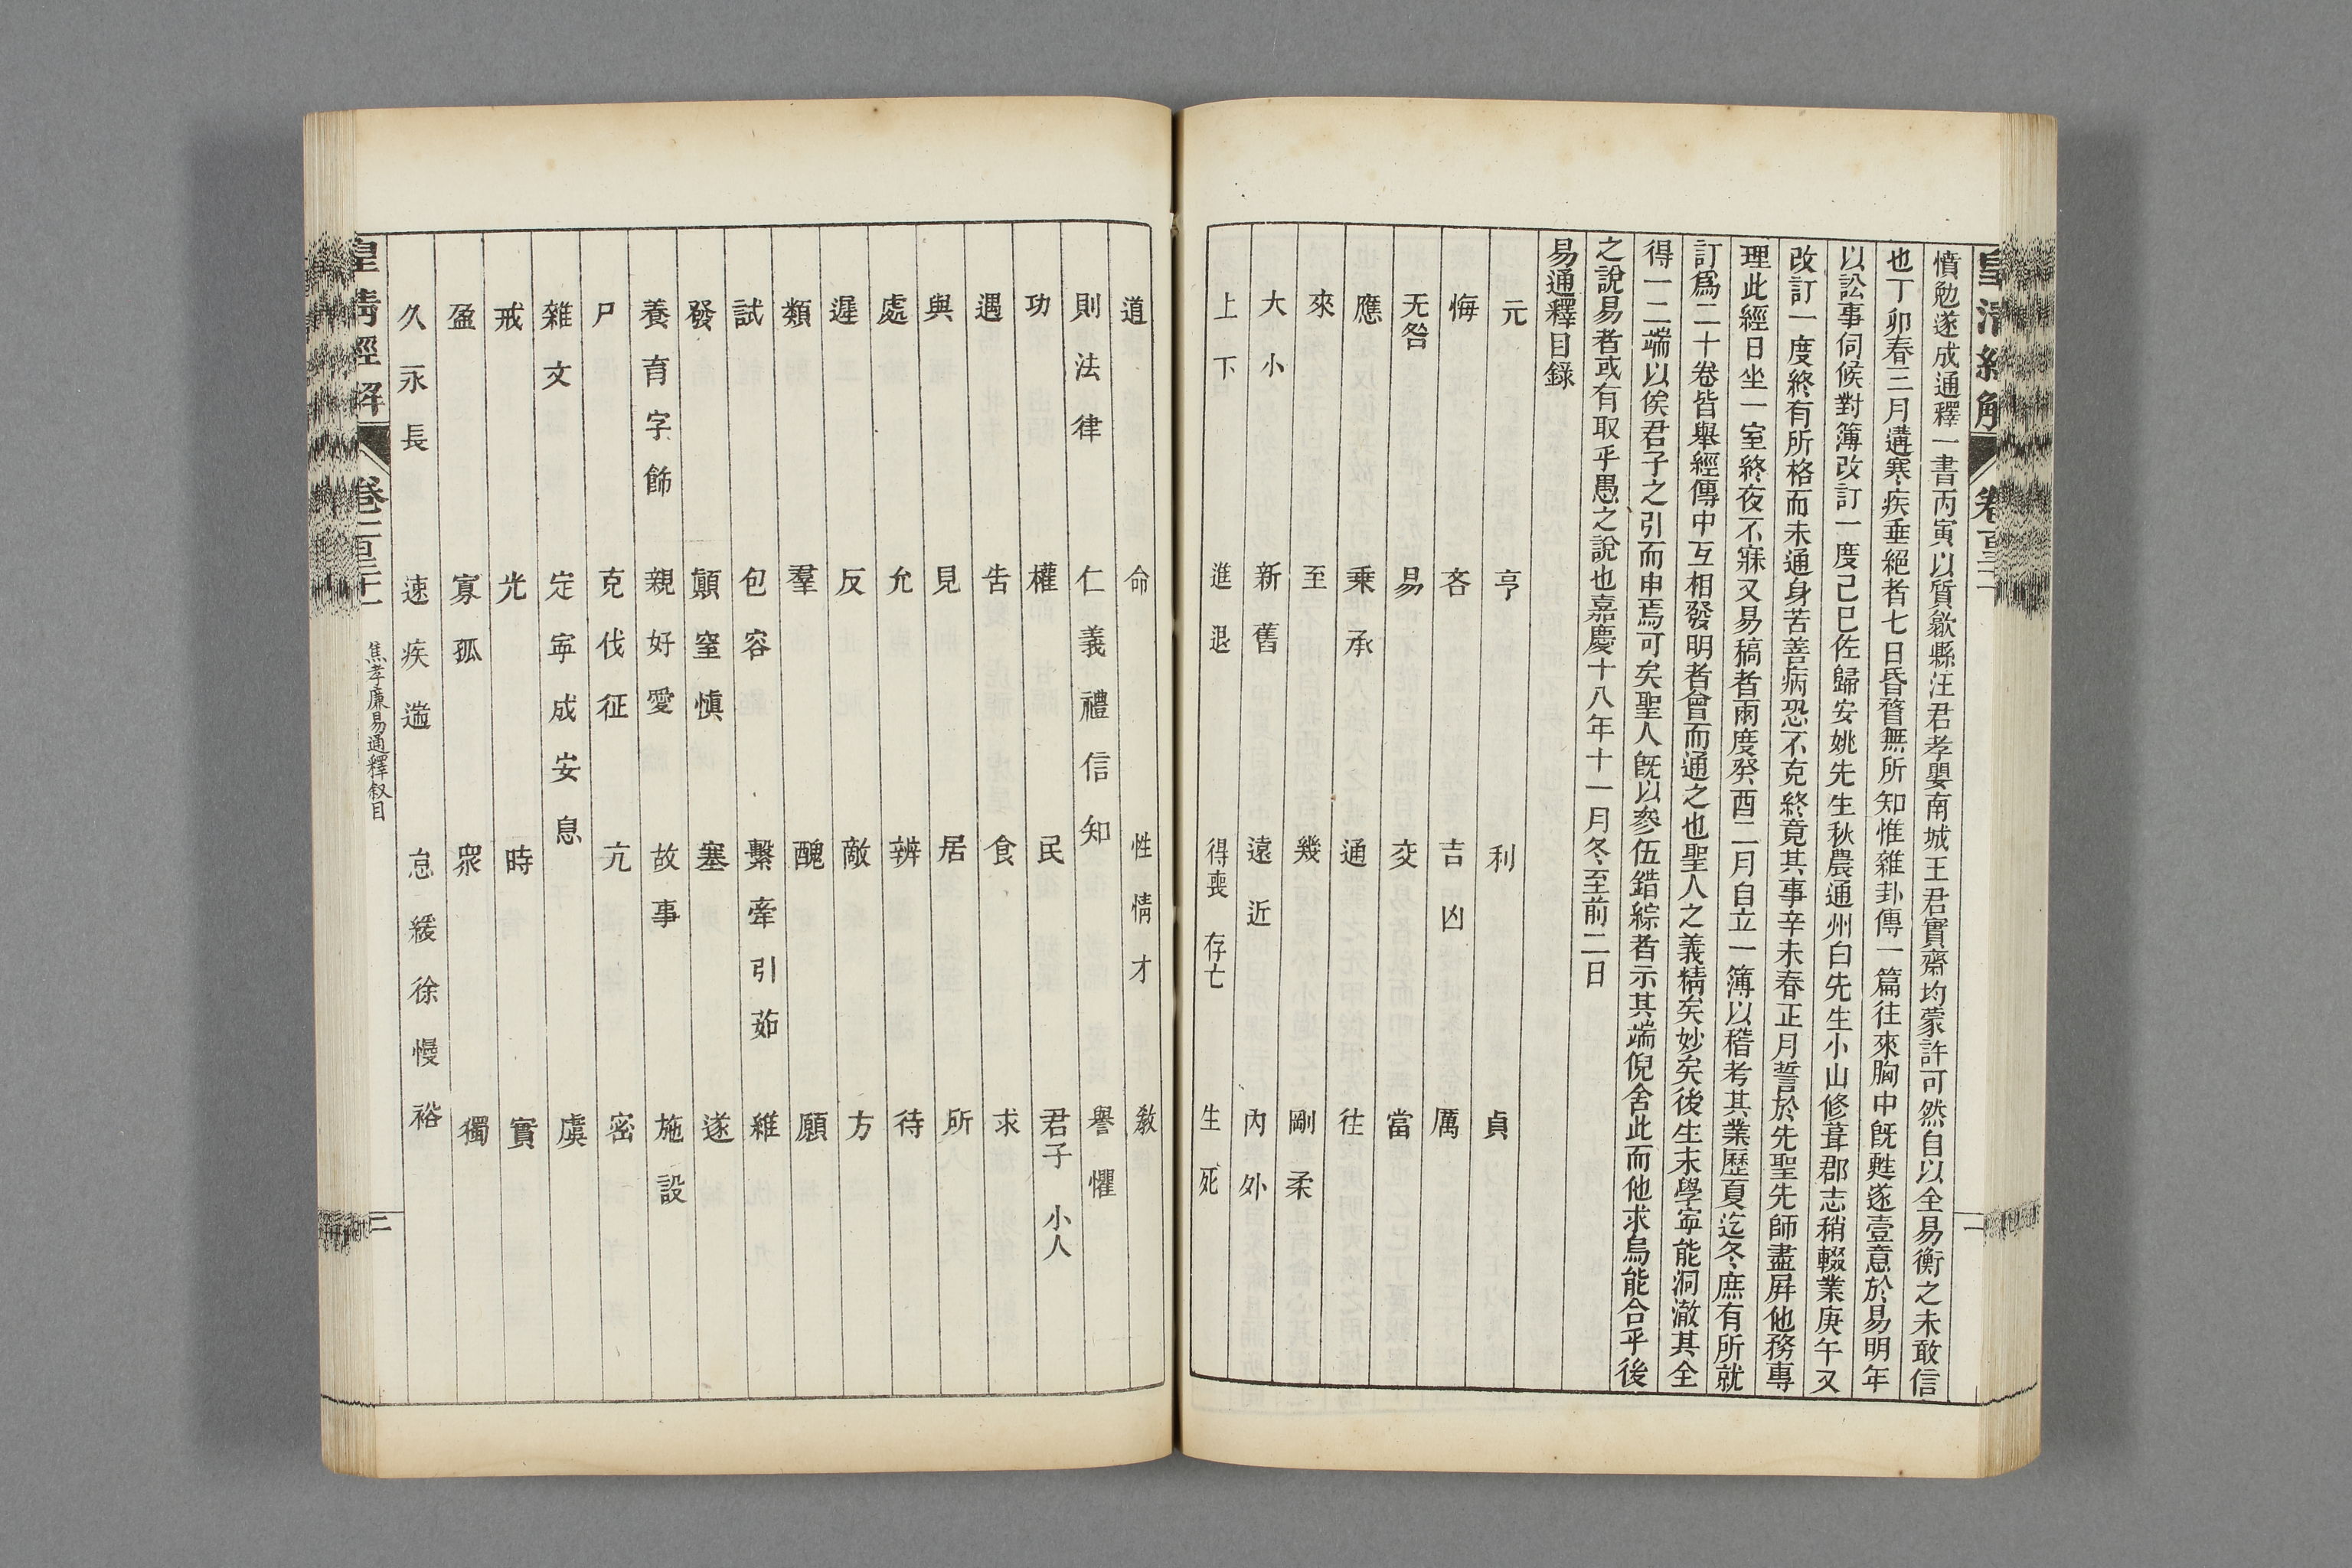 憤勉遂成通釋一書丙寅以質歙縣汪君孝嬰南城王君實齋均蒙許可然自以全易衡之未敢信
也丁卯春三月遘寒疾垂絕者七日昏瞀無所知惟雜卦傳一篇往來胸中既甦遂壹意於易明年
以訟事伺候對簿改訂一度己巳佐歸安姚先生秋農通州白先生小山修葺郡志稍輟業庚午又
改訂一度終有所格而未通身苦善病恐不克終竟其事辛未春正月誓於先聖先師盡屛他務專
理此經日坐一室終夜不寐又易稿者兩度癸酉二月自立一簿以稽考其業歷夏迄冬庶有所就
訂爲二十卷皆舉經傳中互相發明者會而通之也聖人之義精矣妙矣後生末學寧能洞澈其全
得一二端以俟君子之引而申焉可矣聖人旣以參伍錯綜者示其端倪舍此而他求烏能合乎後
之說易者或有取乎愚之說也嘉慶十八年十一月冬至前二日
易通釋目錄
元 亨 利 貞
悔 吝 吉凶 厲
无咎 易 交 當
應 乘承 通 往
來 至 幾 剛柔
大小 新舊 遠近 內外
上下 進退 得喪 存亡 生死
道 命 性情才 敎
則法律 仁義禮信知 譽懼
功 權 民 君子 小人
遇 告 食 求
與 見 居 所
處 允 辨 待
遲 反 敵 方
類 羣 醜 願
試 包容 繫牽引茹 維
發 顚窒愼 塞 遂
養育字飾 親好愛 故事 施設
尸 克伐征 亢 密
雜文 定寧成安息 虞
戒 光 時 實
盈 寡孤 衆 獨
久永長 速疾遄 怠緩徐慢裕
皇淸經解 卷一千一百二十一 焦孝廉易通釋叙目 二